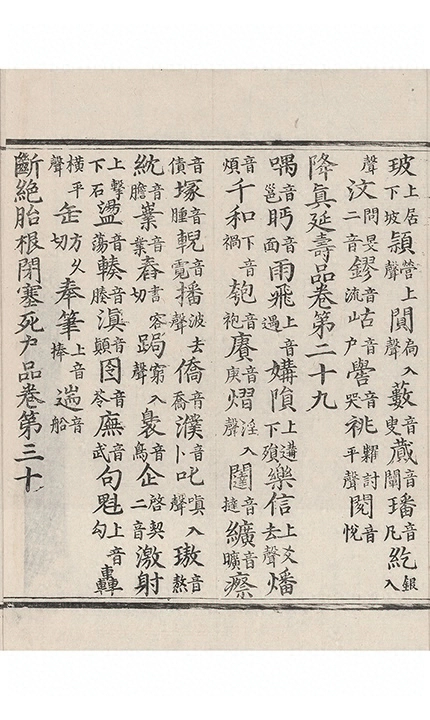 玻上居下坡頴營上聲閴扃入聲籔音叟蒇音闡璠音凡紇銀入
聲汶問旻二音鏐音流岵音户嚳音哭祧糶討平聲閱音悅
降真延壽品卷第二十九
喁音邕眄音面雨飛上音遇媾隕上音溝下殞樂信上爻去聲燔音
煩千和下音禍匏音袍賡音庚熠淫入聲闥音撻纊音曠瘵音
債塚音腫輗音霓播波去聲僑音喬濮音卜叱嗔入聲璈音熬
紞音膽葉音葉舂書容切跼窮入聲裊音鳥企啓契二音激射
上擊下石盪音蕩輳音腠滇音顛囹音苓廡音武句魁上音勾轟
横平聲缶方久切奉筆上音捧遄音船
斷絶胎根閉塞死户品卷第三十